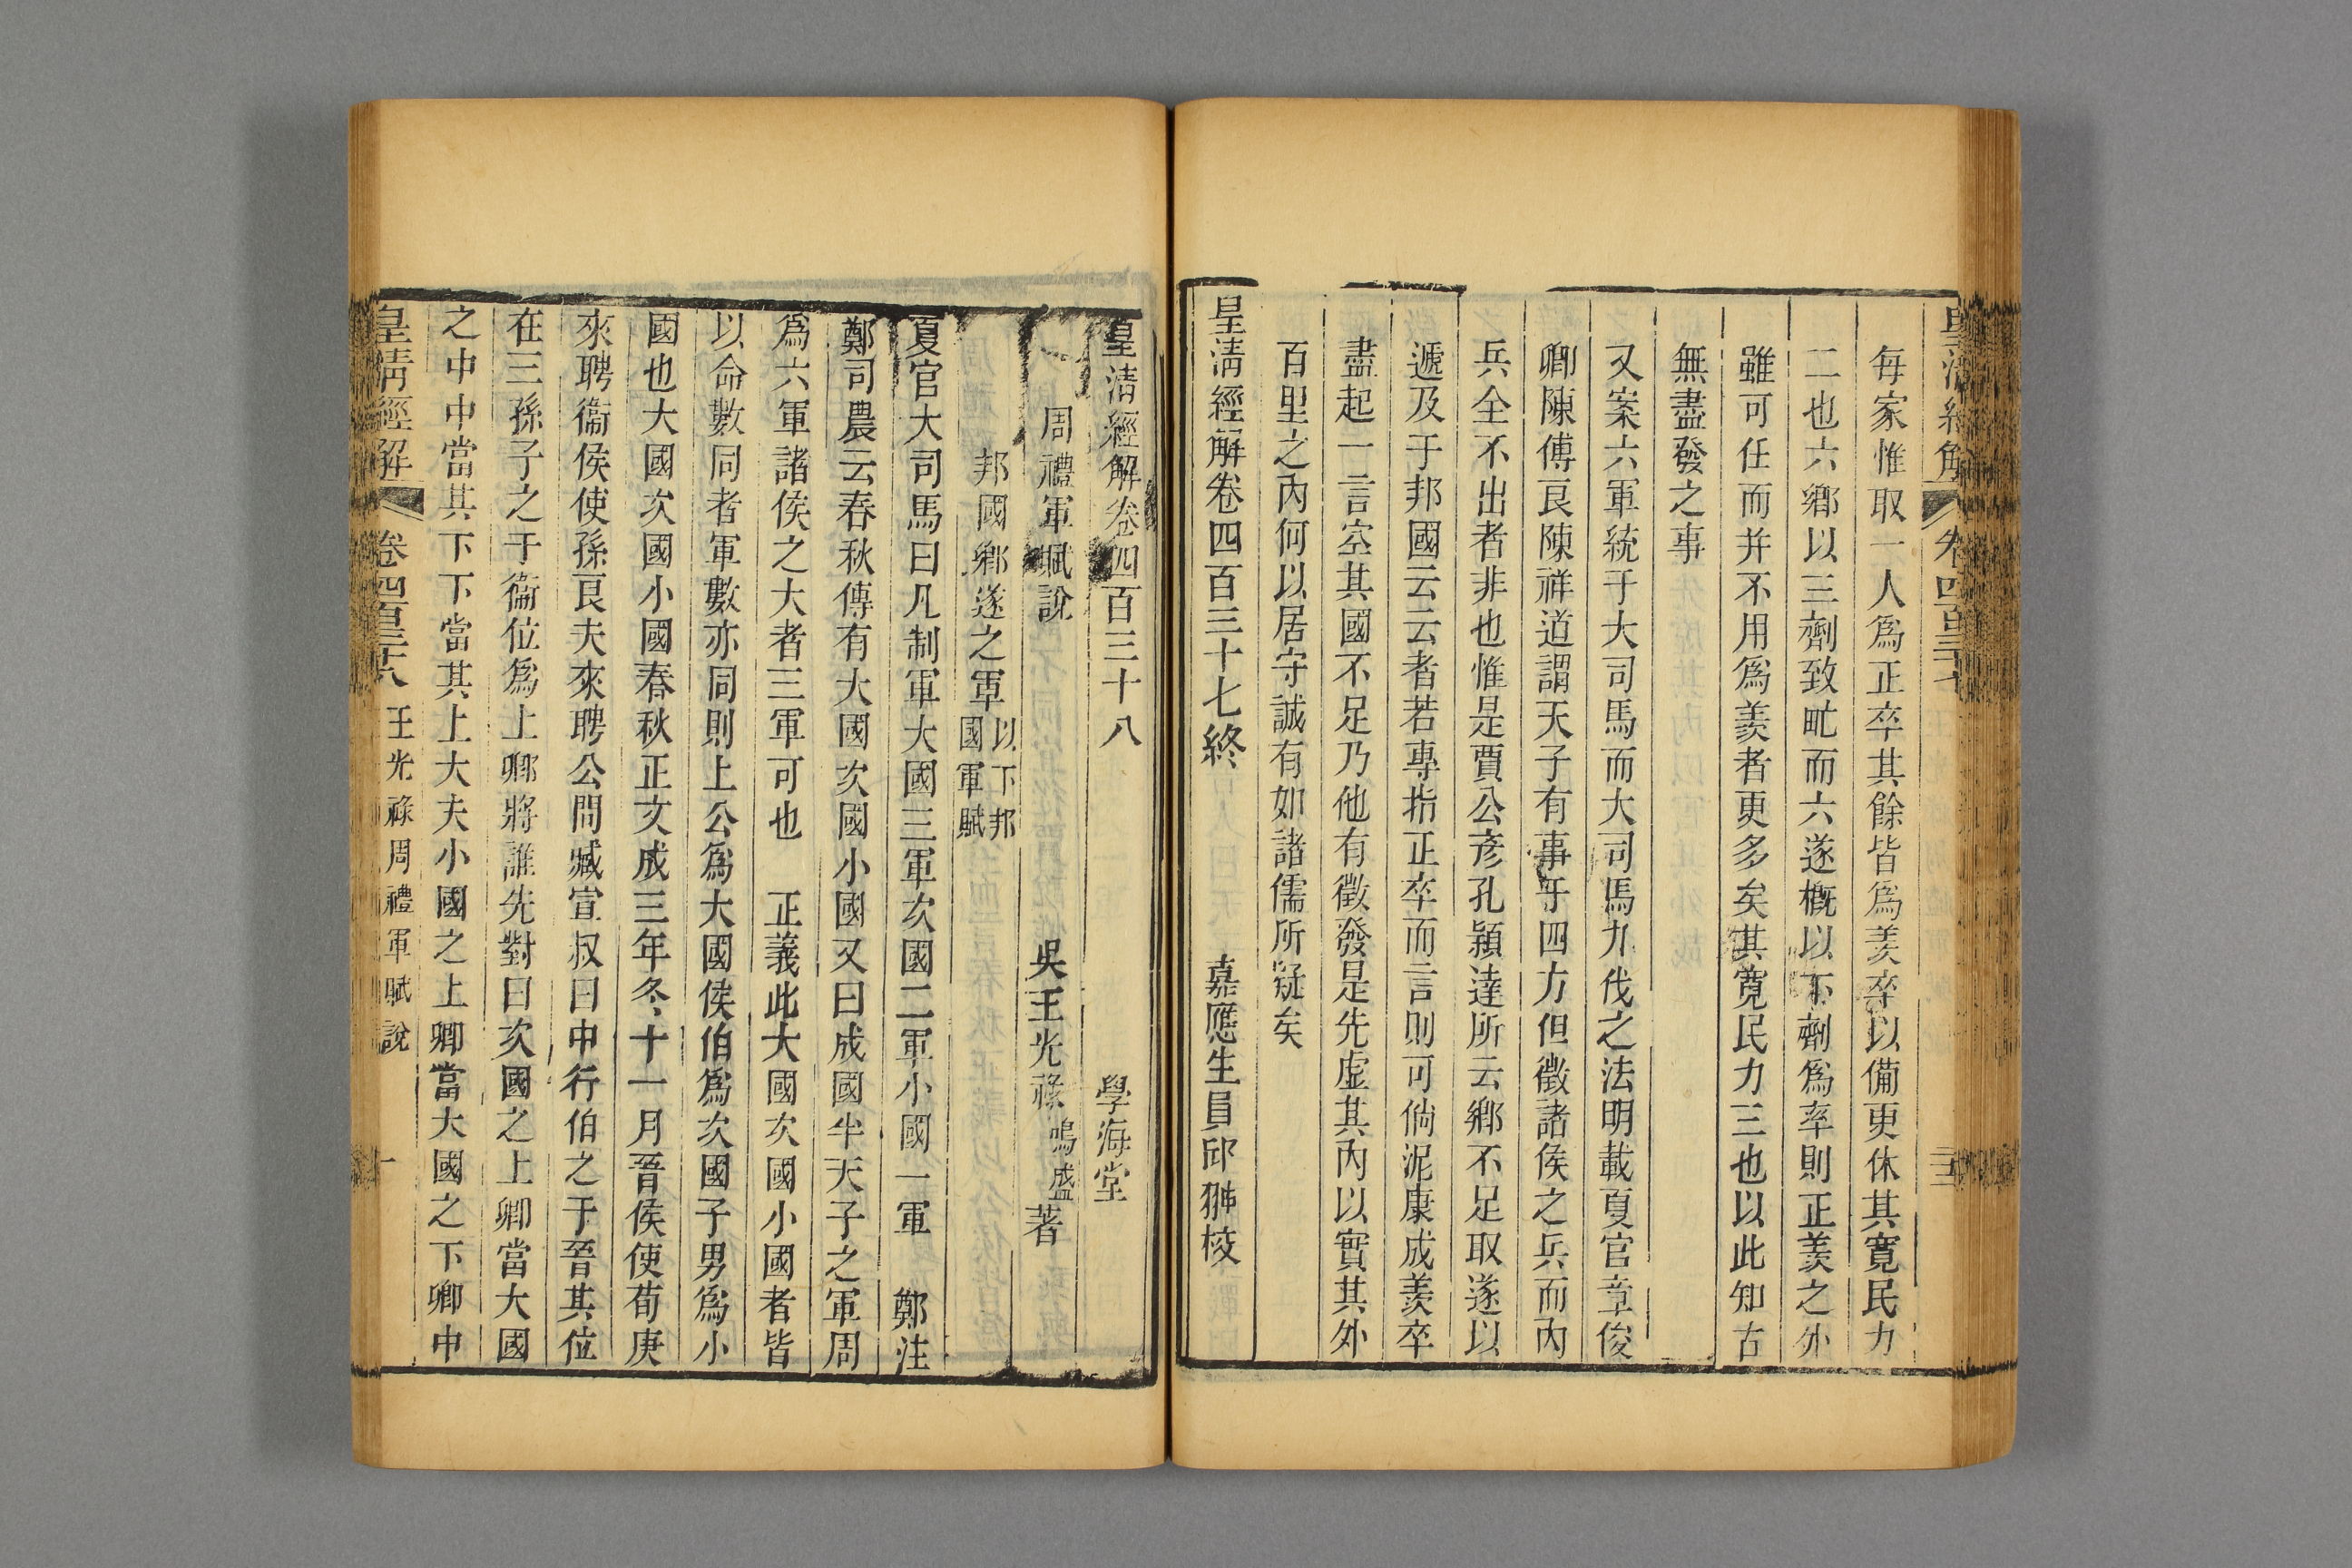 皇清經解 卷四百三十七
每家惟取一人爲正卒其餘皆爲羨卒以備更休其寬民力
二也六鄉以三劑致甿而六遂概以下劑爲率則正羨之外
雖可任而并不用爲羨者更多矣其寬民力三也以此知古
無盡發之事
又案六軍統于大司馬而大司馬九伐之法明載夏官章俊
卿陳傅良陳祥道謂天子有事于四方但徵諸侯之兵而內
兵全不出者非也惟是賈公彥孔穎達所云鄉不足取遂以
遞及于邦國云云者若專指正卒而言則可倘泥康成羨卒
盡起一言空其國不足乃他有徵發是先虛其內以實其外
百里之內何以居守誠有如諸儒所疑矣
皇清經解卷四百三十七終 嘉應生員邱翀校
皇清經解卷四百三十八 學海堂
周禮軍賦說 吳王光祿鳴盛著
邦國鄉遂之軍以下邦國軍賦
夏官大司馬曰凡制軍大國三軍次國二軍小國一軍 鄭注
鄭司農云春秋傳有大國次國小國又曰成國半天子之軍周
爲六軍諸侯之大者三軍可也 正義此大國次國小國者皆
以命數同者軍數亦同則上公爲大國侯伯爲次國子男爲小
國也大國次國小國春秋正文成三年冬十一月晉侯使荀庚
來聘衞侯使孫良夫來聘公問臧宣叔曰中行伯之于晉其位
在三孫子之于衞位爲上卿將誰先對曰次國之上卿當大國
之中中當其下下當其上大夫小國之上卿當大國之下卿中
皇清經解 卷四百三十八 王光祿周禮軍賦說 一